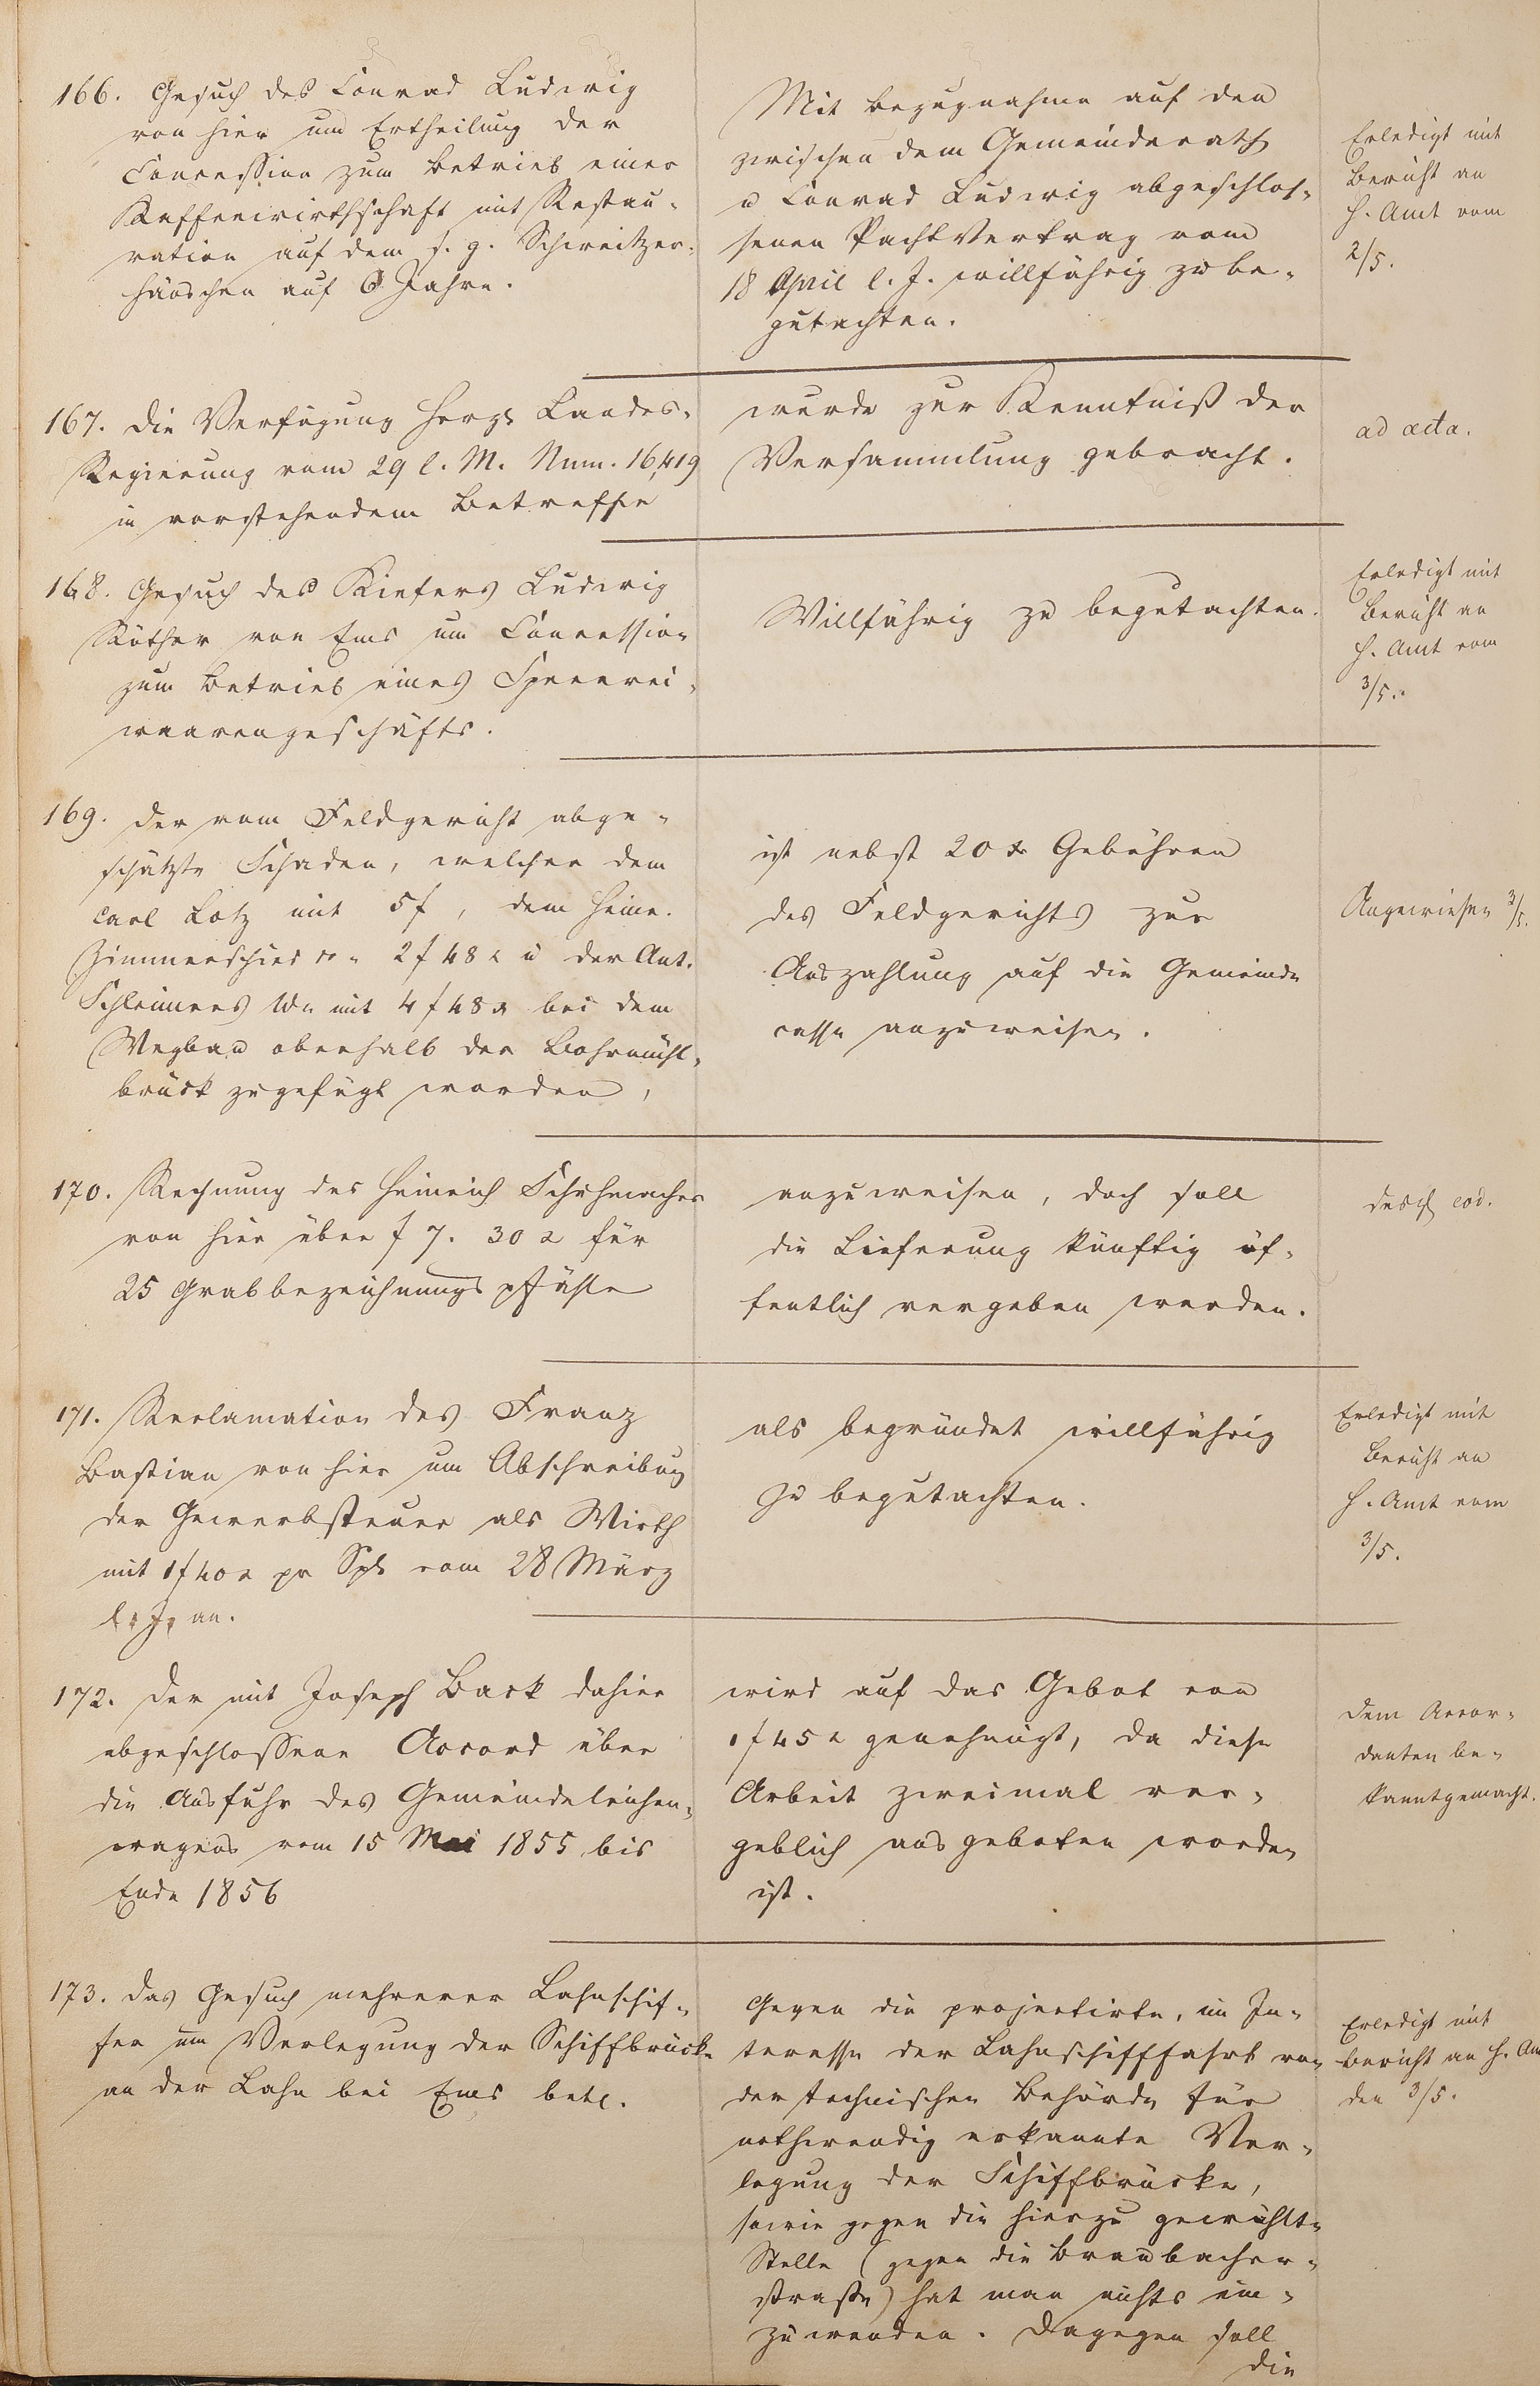 166. Gesuch des Conrad Ludwig
von hier um Ertheilung der
Concession zum Betrieb einer
Kaffeewirthschaft mit Restau-
ration auf dem s. g. Schweitzer-
häuschen auf 6 Jahre.
Mit Bezugnahme auf den
zwischen dem Gemeinderath
u Conrad Ludwig abgeschlos-
senen Pachtvertrag vom
18 April l. J. willfährig zu be-
gutachten.
Erledigt mit
Bericht an
H. Amt vom
2/5.
167. Die Verfügung Herzl. Landes-
Regierung vom 29 l. M. Num. 16,419
in vorstehendem Betreffe
wurde zur Kenntniß der
Versammlung gebracht.
ad acta.
168. Gesuch des Kiefers Ludwig
Käther von Ems um Concession
zum Betrieb eines Specerei-
waarengeschäfts.
Willfährig zu begutachten.
Erledigt mit
Bericht an
H. Amt vom
3/5.
169. Der vom Feldgericht abge-
schätzte Schaden, welcher dem
Carl Lotz mit 5 f, dem Heinr.
Zimmerschied 2 f 48 x u der Ant.
Schleimers We mit 4 f 48 x bei dem
Wegbau oberhalb der Bohrmühl-
brück zugefügt worden,
ist nebst 20 x Gebühren
des Feldgerichts zur
Auszahlung auf die Gemeinde
casse anzuweisen.
Angewiesen 3/5.
170. Rechnung des Heinrich Schuhmacher
von hier über f 7. 30 x für
25 Grabbezeichnungspfähle
anzuweisen, doch soll
die Lieferung künftig öf-
fentlich vergeben werden.
eod.
171. Reclamation des Franz
Bastian von hier um Abschreibung
der Gewerbsteuer als Wirth
mit 1 f 40 x pr Spl vom 28 März
l. J. an.
als begründet willfährig
zu begutachten.
Erledigt mit
Bericht an
H. Amt vom
3/5.
172. Der mit Joseph Back dahier
abgeschlossene Accord über
die Ausfuhr des Gemeindeleichen-
wagens vom 15 Mai 1855 bis
Ende 1856
wird auf das Gebot von
1 f 45 x genehmigt, da diese
Arbeit zweimal ver-
geblich ausgeboten worden
ist.
Dem Accor-
danten be-
kanntgemacht.
173. Das Gesuch mehrerer Lahnschif-
fer um Verlegung der Schiffbrücke
an der Lahn bei Ems betr.
Gegen die projectirte, im In-
teresse der Lahnschifffahrt von
der technischen Behörde für
nothwendig erkannte Ver-
legung der Schiffbrücke,
sowie gegen die hierzu gewählte
Stelle (gegen die Braubacher-
straße) hat man nichts ein-
zuwenden. Dagegen soll
die
Erledigt mit
Bericht an H. Am
den 3/5.